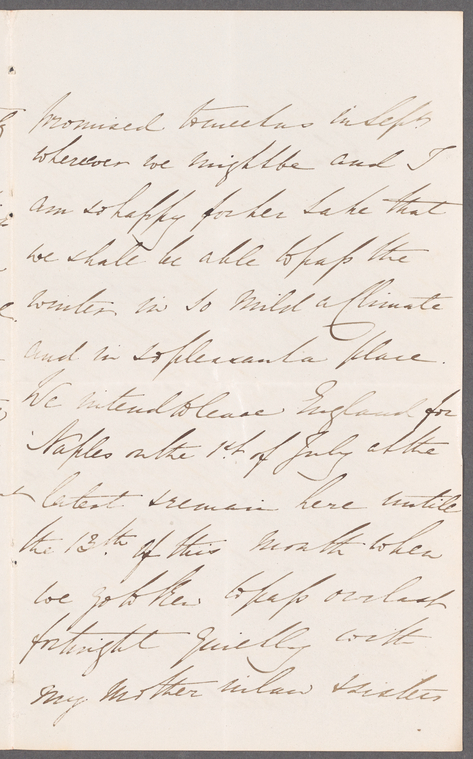 promised to meet us in Sept.
wherever we might be and I
am so happy for her sake that
we shall be able to pass the
winter in so mild a Climate
and in so pleasant a place.
We intend to leave England for
Naples on the 1st of July at the
latest & remain here untill
the 13th of this month when
we go to Kew to pass our last
fortnight quietly with
my Mother in law & sisters